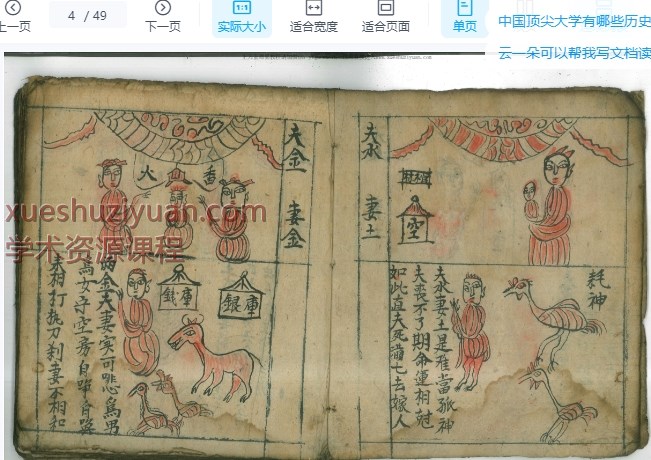 上一页
4 / 49
下一页
1:1
实际大小
适合宽度
适合页面
单页
中国顶尖大学有哪些历史
云一朵可以帮我写文档读
夫水 妻土
空
耗神
夫水妻土是推當孤神
夫喪不了期命運相尅
如此直夫死猶七去嫁人
夫金 妻金
香
火
銀庫
兩金夫妻实可悲為男
為女守空房自
夫相打抗刀刹妻不相和
xueshuziyuan.com
学术资源课程